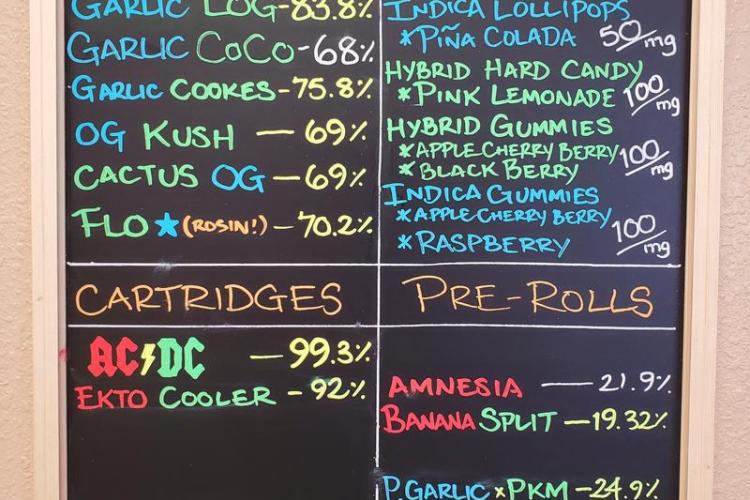 GARLIC LOG-83.8%
GARLIC COCO-68%
GARLIC COOKES-75.8%
OG KUSH — 69%
CACTUS OG — 69%
FLO ★ (ROSIN!) — 70.2%
INDICA LOLLIPOPS
*PIÑA COLADA 50/mg
HYBRID HARD CANDY
*PINK LEMONADE 100/mg
HYBRID GUMMIES
*APPLE CHERRY BERRY
*BLACK BERRY 100/mg
INDICA GUMMIES
*APPLE CHERRY BERRY
*RASPBERRY 100/mg
CARTRIDGES
AC⚡DC — 99.3%
EKTO COOLER - 92%
PRE-ROLLS
AMNESIA — 21.9%
BANANA SPLIT — 19.32%
P. GARLIC x PKM — 24.9%